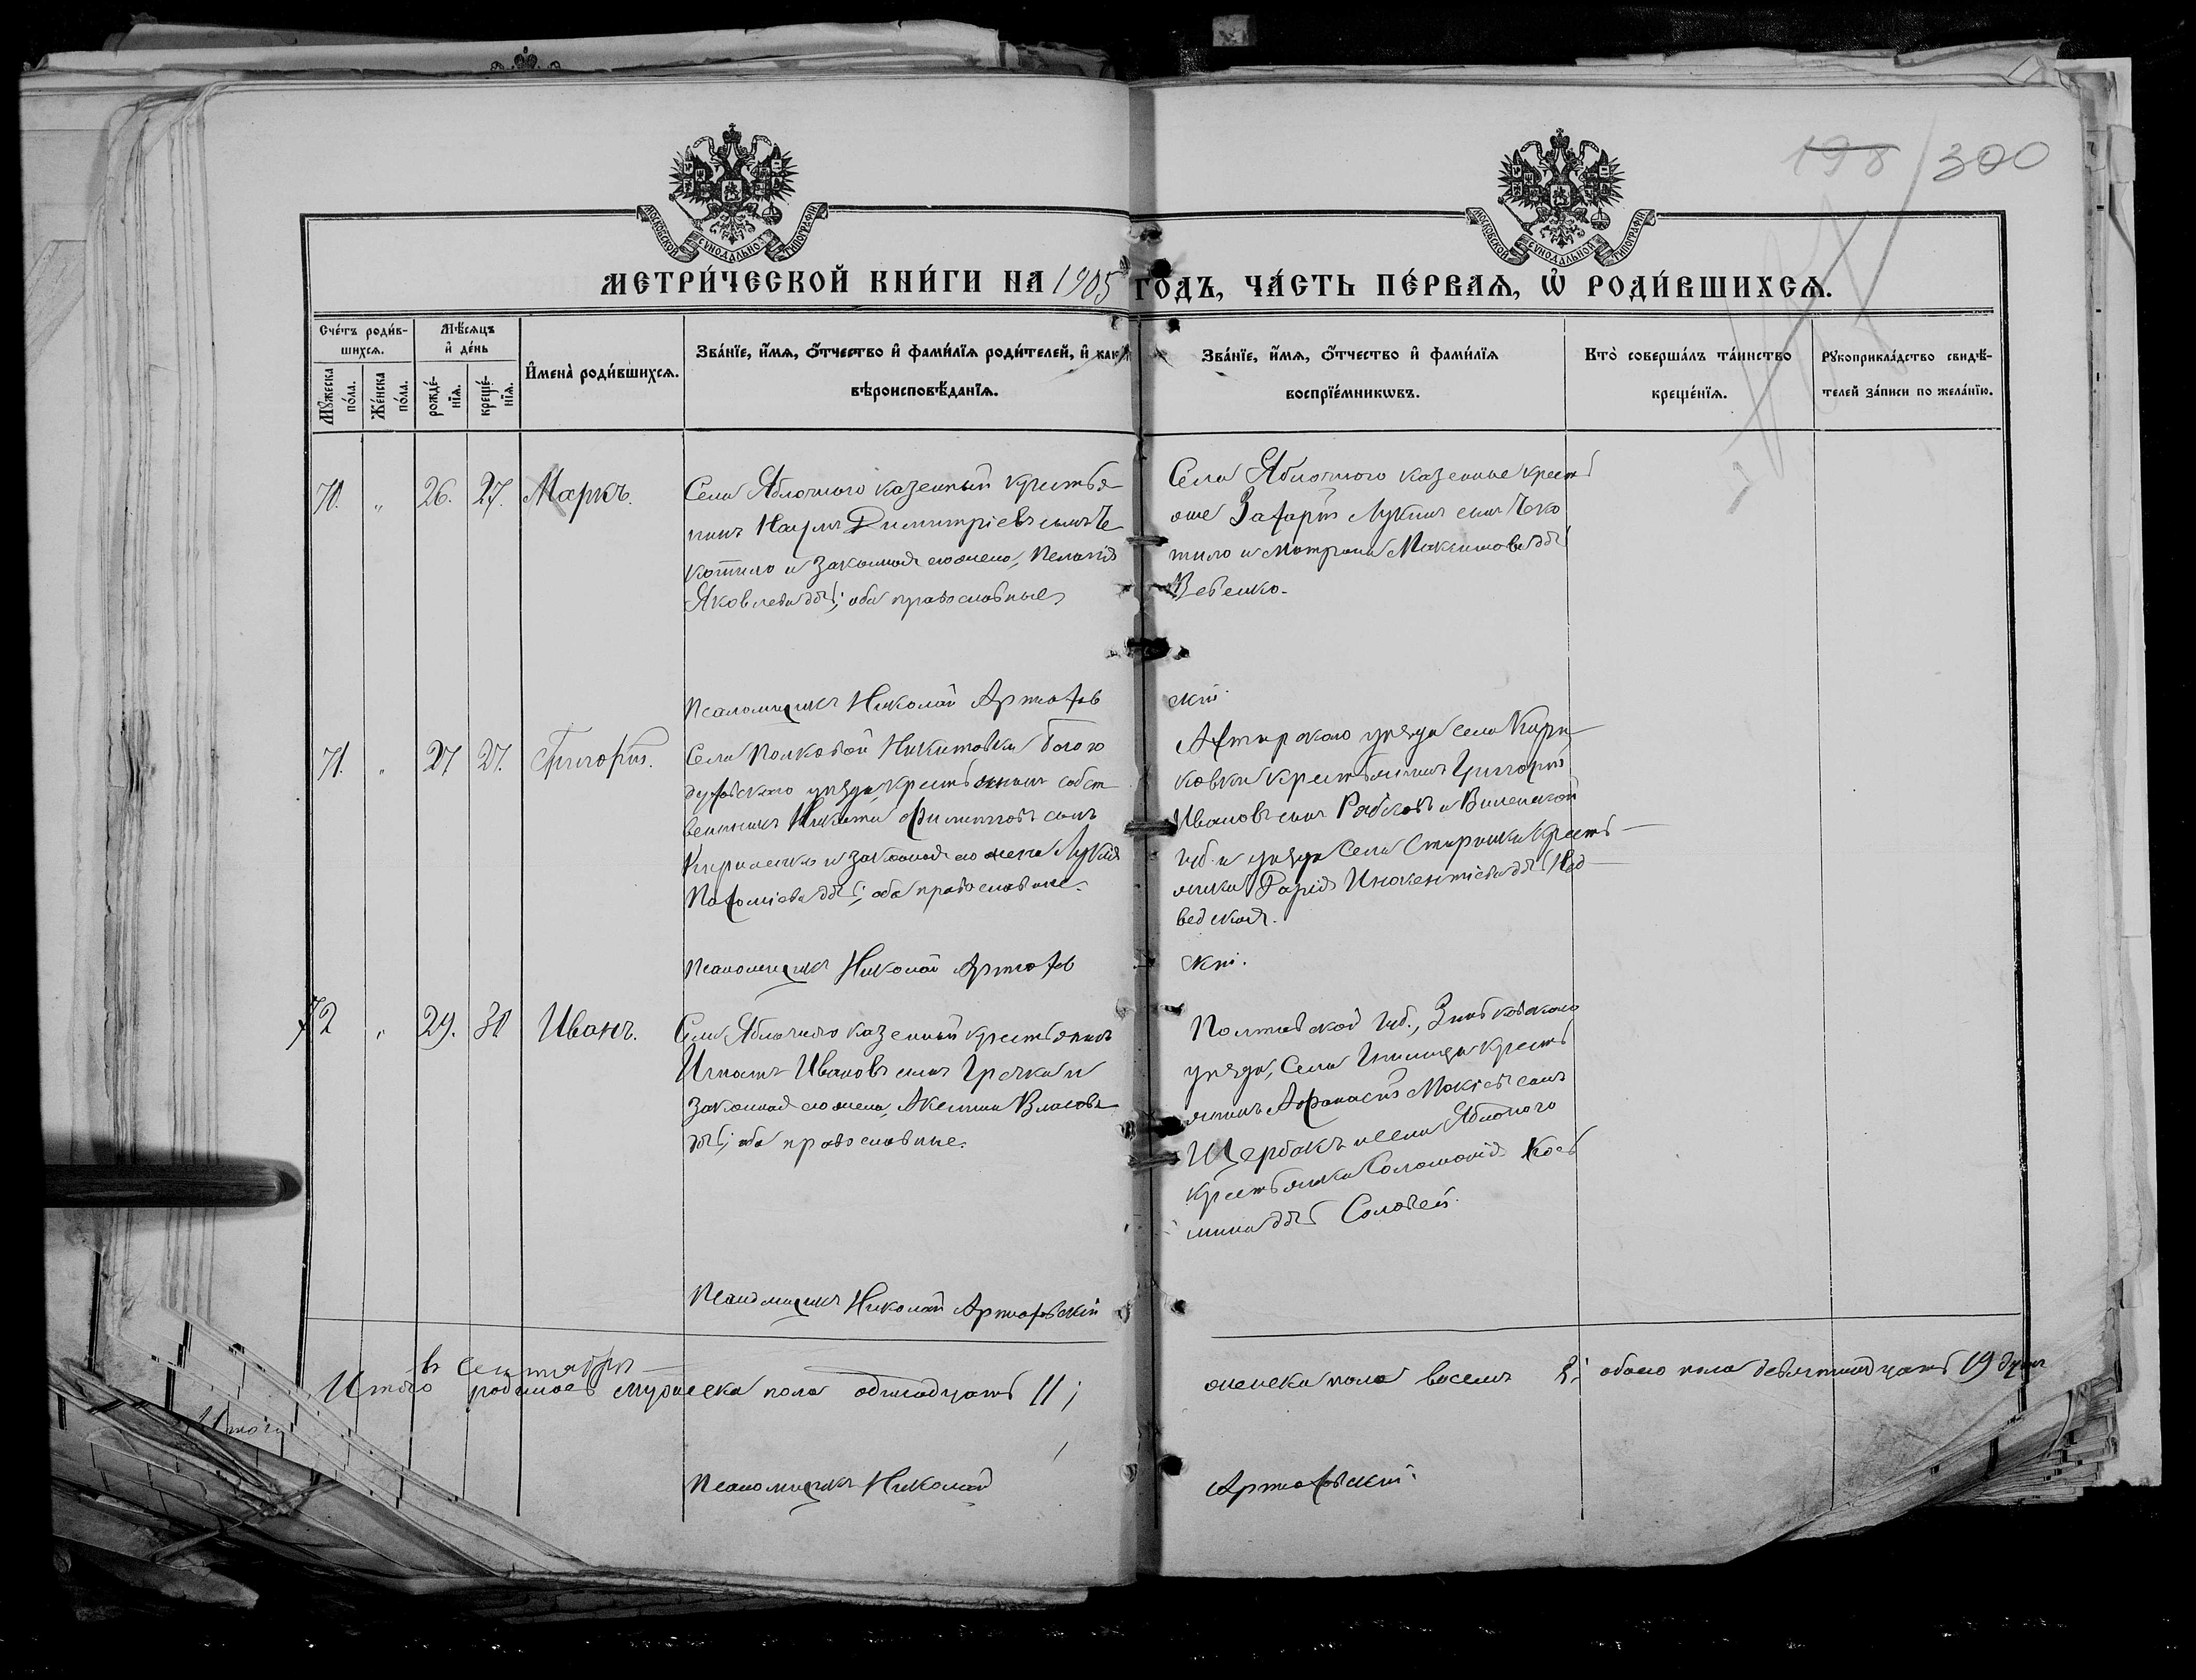 198/300
МОСКОВСКОЙ СѴНОДАЛЬНОЙ ТИПОГРАФІИ
МОСКОВСКОЙ СѴНОДАЛЬНОЙ ТИПОГРАФІИ
МЕТРИ́ЧЕСКОЙ КНИ́ГИ НА 1905 ГОДЪ, ЧА́СТЬ ПЕ́РВАЯ, Ѡ҆ РОДИ́ВШИХСЯ.
Сче́тъ роди́в-
шихся.
Мѣ́сяцъ
и҆ де́нь
Мꙋ́жеска по́ла.
Же́нска по́ла.
рожде́-нїя.
креще́-нїя.
И҆мена̀ роди́вшихся.
Зва́нїе, и҆́мя, ѻ҆́тчество и҆ фами́лїя роди́телей, и҆ как
вѣроисповѣ́данїя.
Зва́нїе, и҆́мя, ѻ҆́тчество и҆ фами́лїя
воспрїе́мникѡвъ.
Кто̀ соверша́лъ та́инство
креще́нїя.
Рꙋкоприкла́дство свидѣ́-
телей за́писи по жела́нїю.
70. „ 26. 27. Маркъ.
Села Яблочного казенный крестья
нинъ Наумъ Димитріевъ сынъ Че
котило и законная его жена, Пелагія
Яковлева дочь; оба православные
Села Яблочного казенные кресть
яне Захарій Лукинъ сынъ Чеко
тило и Матрона Максимова дочь
Псаломщикъ Николай Артюхов
скій.
71. „ 27 27. Григорій.
Села Полковой Никитовки Богоо
духовскаго уѣзда, крестьянинъ собст
венникъ Никита Филипповъ сынъ
Кириленко и законная его жена Лукія
Пахоміева дочь; оба православные.
Ахтырского уѣзда села Кири
ковки крестьянинъ Григорій
Ивановъ сынъ Рябковъ и Виленской
губ. и уѣзда села крест
янка Дарія Инокентіева дочь
ведская.
Псаломщикъ Николай Артюхов
скій.
72 „ 29. 30 Иванъ.
Села Яблочного казенный крестьянинъ
Игнатъ Ивановъ сынъ Гречка и
законная его жена, Аксинія Власова
дочь; оба православные.
Полтавской губ., Зиньковскаго
уѣзда, села крест
янинъ Афанасій Мокіевъ сынъ
Щербакъ и села Яблочного
крестьянка Соломонія Козь
мина дочь Соловей.
Псаломщикъ Николай Артюховскій
въ Сентябрѣ
Итого родилось мужеска пола одинадцать 11;
женска пола восемь 8; обоего пола девятнадцать 19 душъ
Итого
Псаломщикъ Николай
Артюховскій.